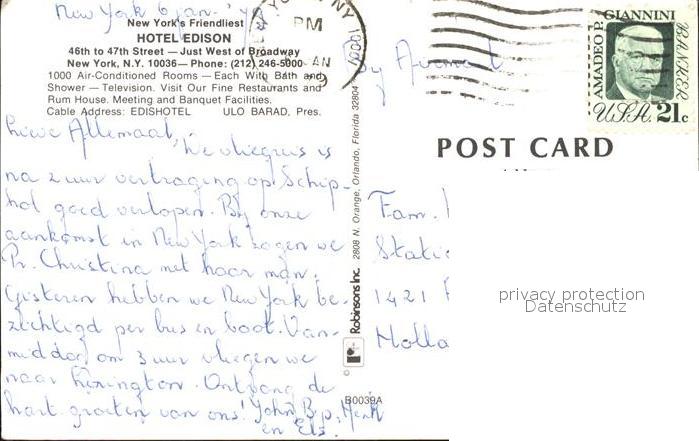 New York 6 jan.
New York's Friendliest
HOTEL EDISON
46th to 47th Street — Just West of Broadway
New York, N.Y. 10036 — Phone: (212) 246-5000
1000 Air-Conditioned Rooms — Each With Bath and
Shower — Television. Visit Our Fine Restaurants and
Rum House. Meeting and Banquet Facilities.
Cable Address: EDISHOTEL ULO BARAD, Pres.
Lieve Allemaal,
De vliegreis is
na 2 uur vertraging op Schip-
hol goed verlopen. Bij onze
aankomst in New York zagen we
Pr. Christina met haar man.
Gisteren hebben we New York be-
zichtigd per bus en boot. Van-
middag om 3 uur vliegen we
naar Lexington. Ontvang de
hart. groeten van ons! John, Bep, Henk
en Els.
B0039A
Robinsons Inc. 2808 N. Orange, Orlando, Florida 32804
NY
PM
AN
10001
By Airmail
AMADEO P. GIANNINI
BANKER
U.S.A. 21c
POST CARD
Fam.
Static
1421
Holla
privacy protection
Datenschutz